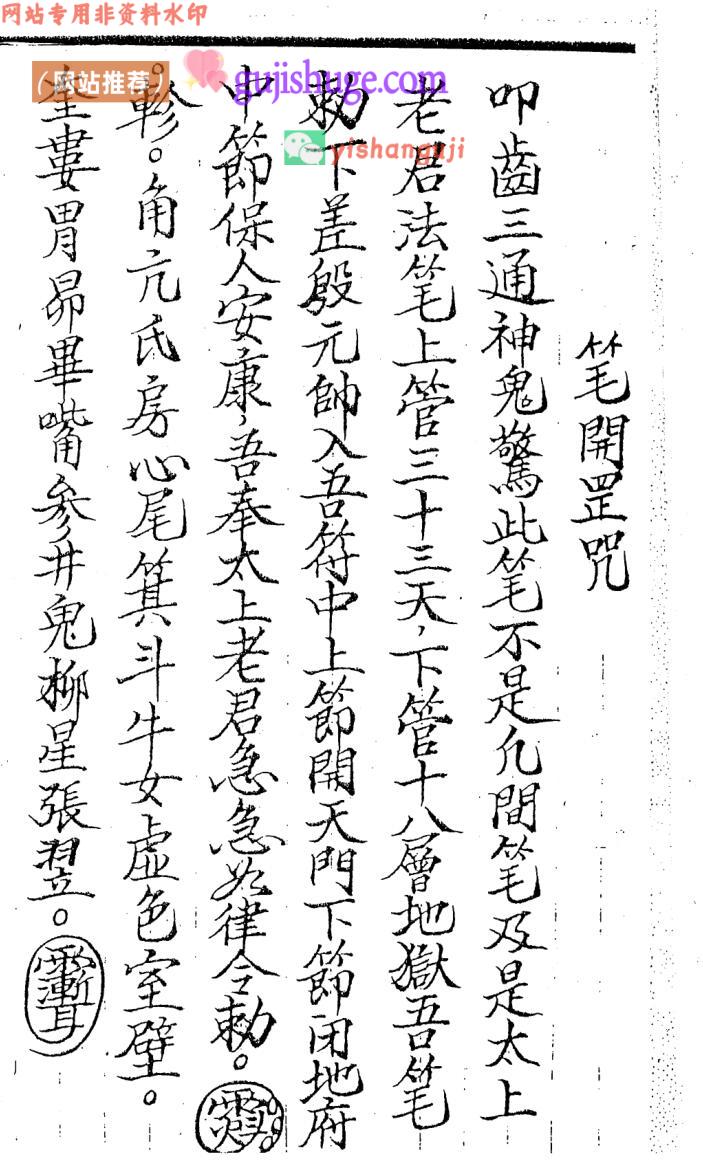 网站专用非资料水印
（网站推荐）
gujishuge.com
yishanguji
笔開罡咒
叩齒三通神鬼驚此笔不是凢間笔及是太上
老君法笔上管三十三天，下管十八層地獄吾笔
勅下差殷元帥入吾符中上節開天門下節闭地府
中節保人安康，吾奉太上老君急急如律令勅。
軫。角亢氐房心尾箕斗牛女虛色室壁。
奎婁胃昴畢嘴參井鬼柳星張翌。